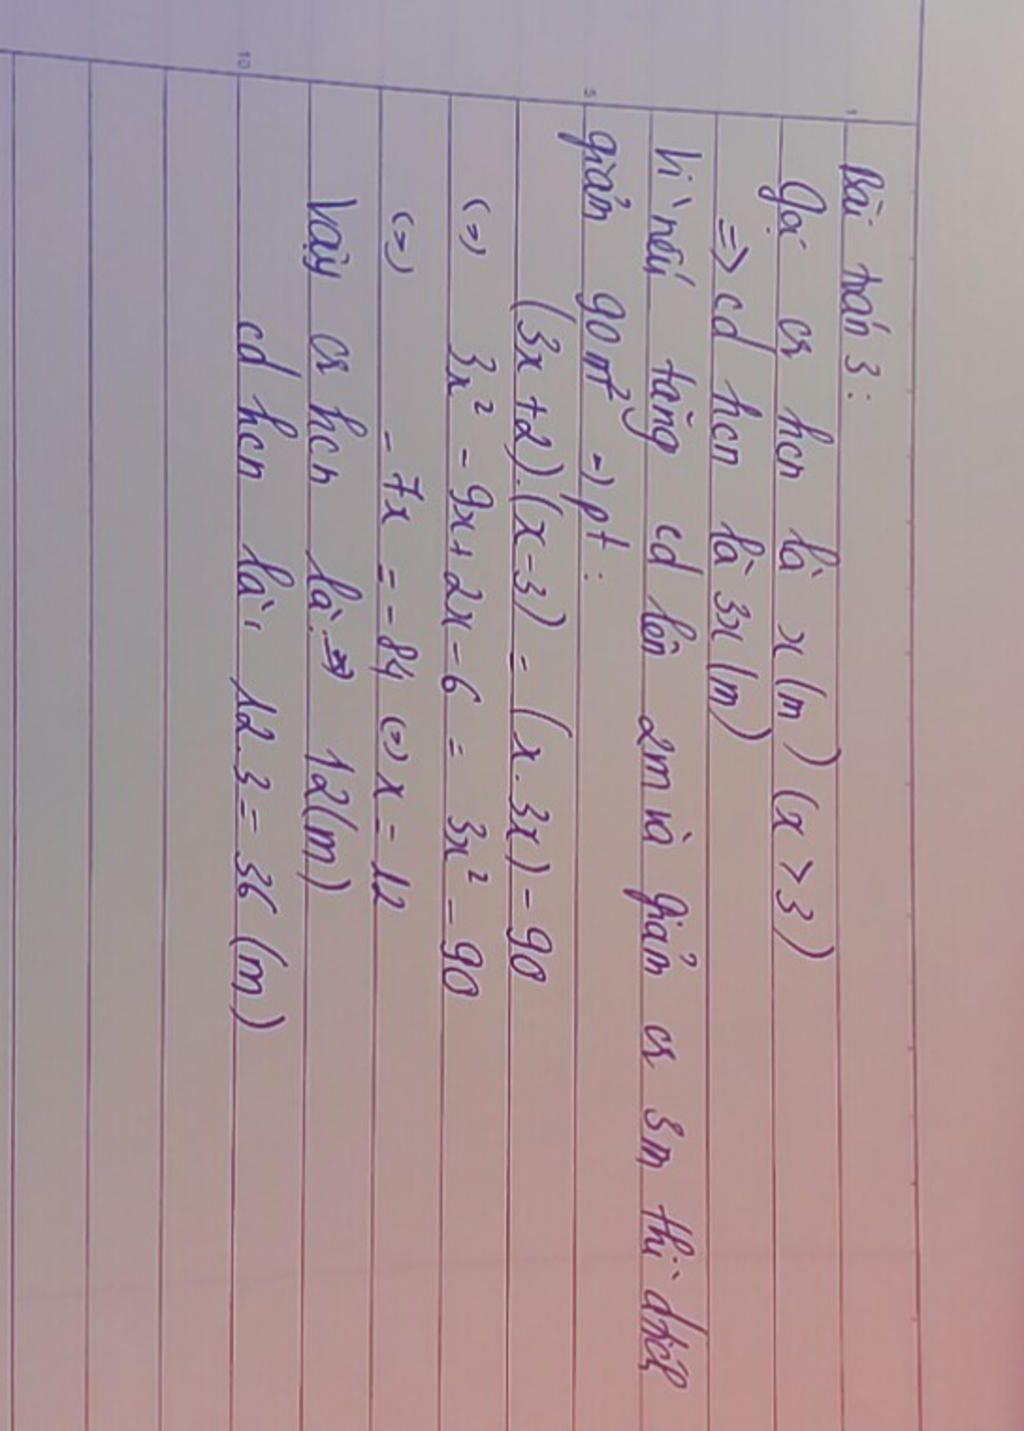 1
Bài toán 3:
Gọi cr hcn là x (m) (x > 3)
=> cd hcn là 3x (m)
Vì nếu tăng cd lên 2m và giảm cr 3m thì dtích
5
giảm 90m² -> pt:
(3x + 2).(x - 3) = (x . 3x) - 90
(=) 3x² - 9x + 2x - 6 = 3x² - 90
(=) - 7x = - 84 (=) x = 12
Vậy cr hcn là: 12(m)
10
cd hcn là: 12.3 = 36 (m)